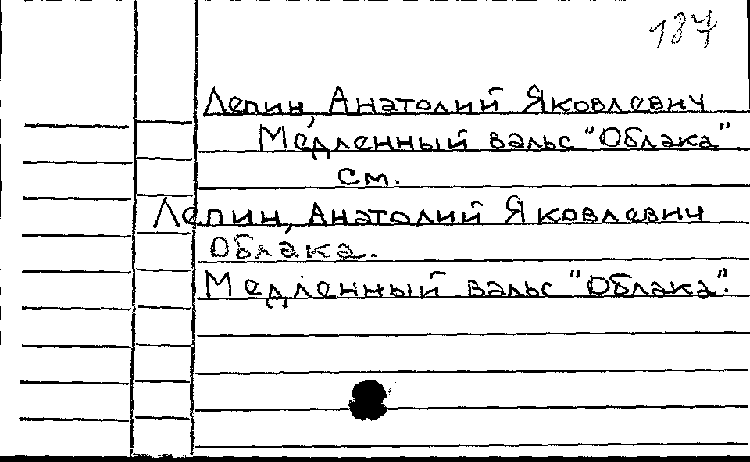 137
Лепин, Анатолий Яковлевич
Медленный вальс "Облака".
см.
Лепин, Анатолий Яковлевич
Облака.
Медленный вальс "Облака".